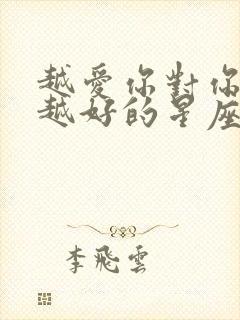 越愛你對你
越好的星座
李飛雲